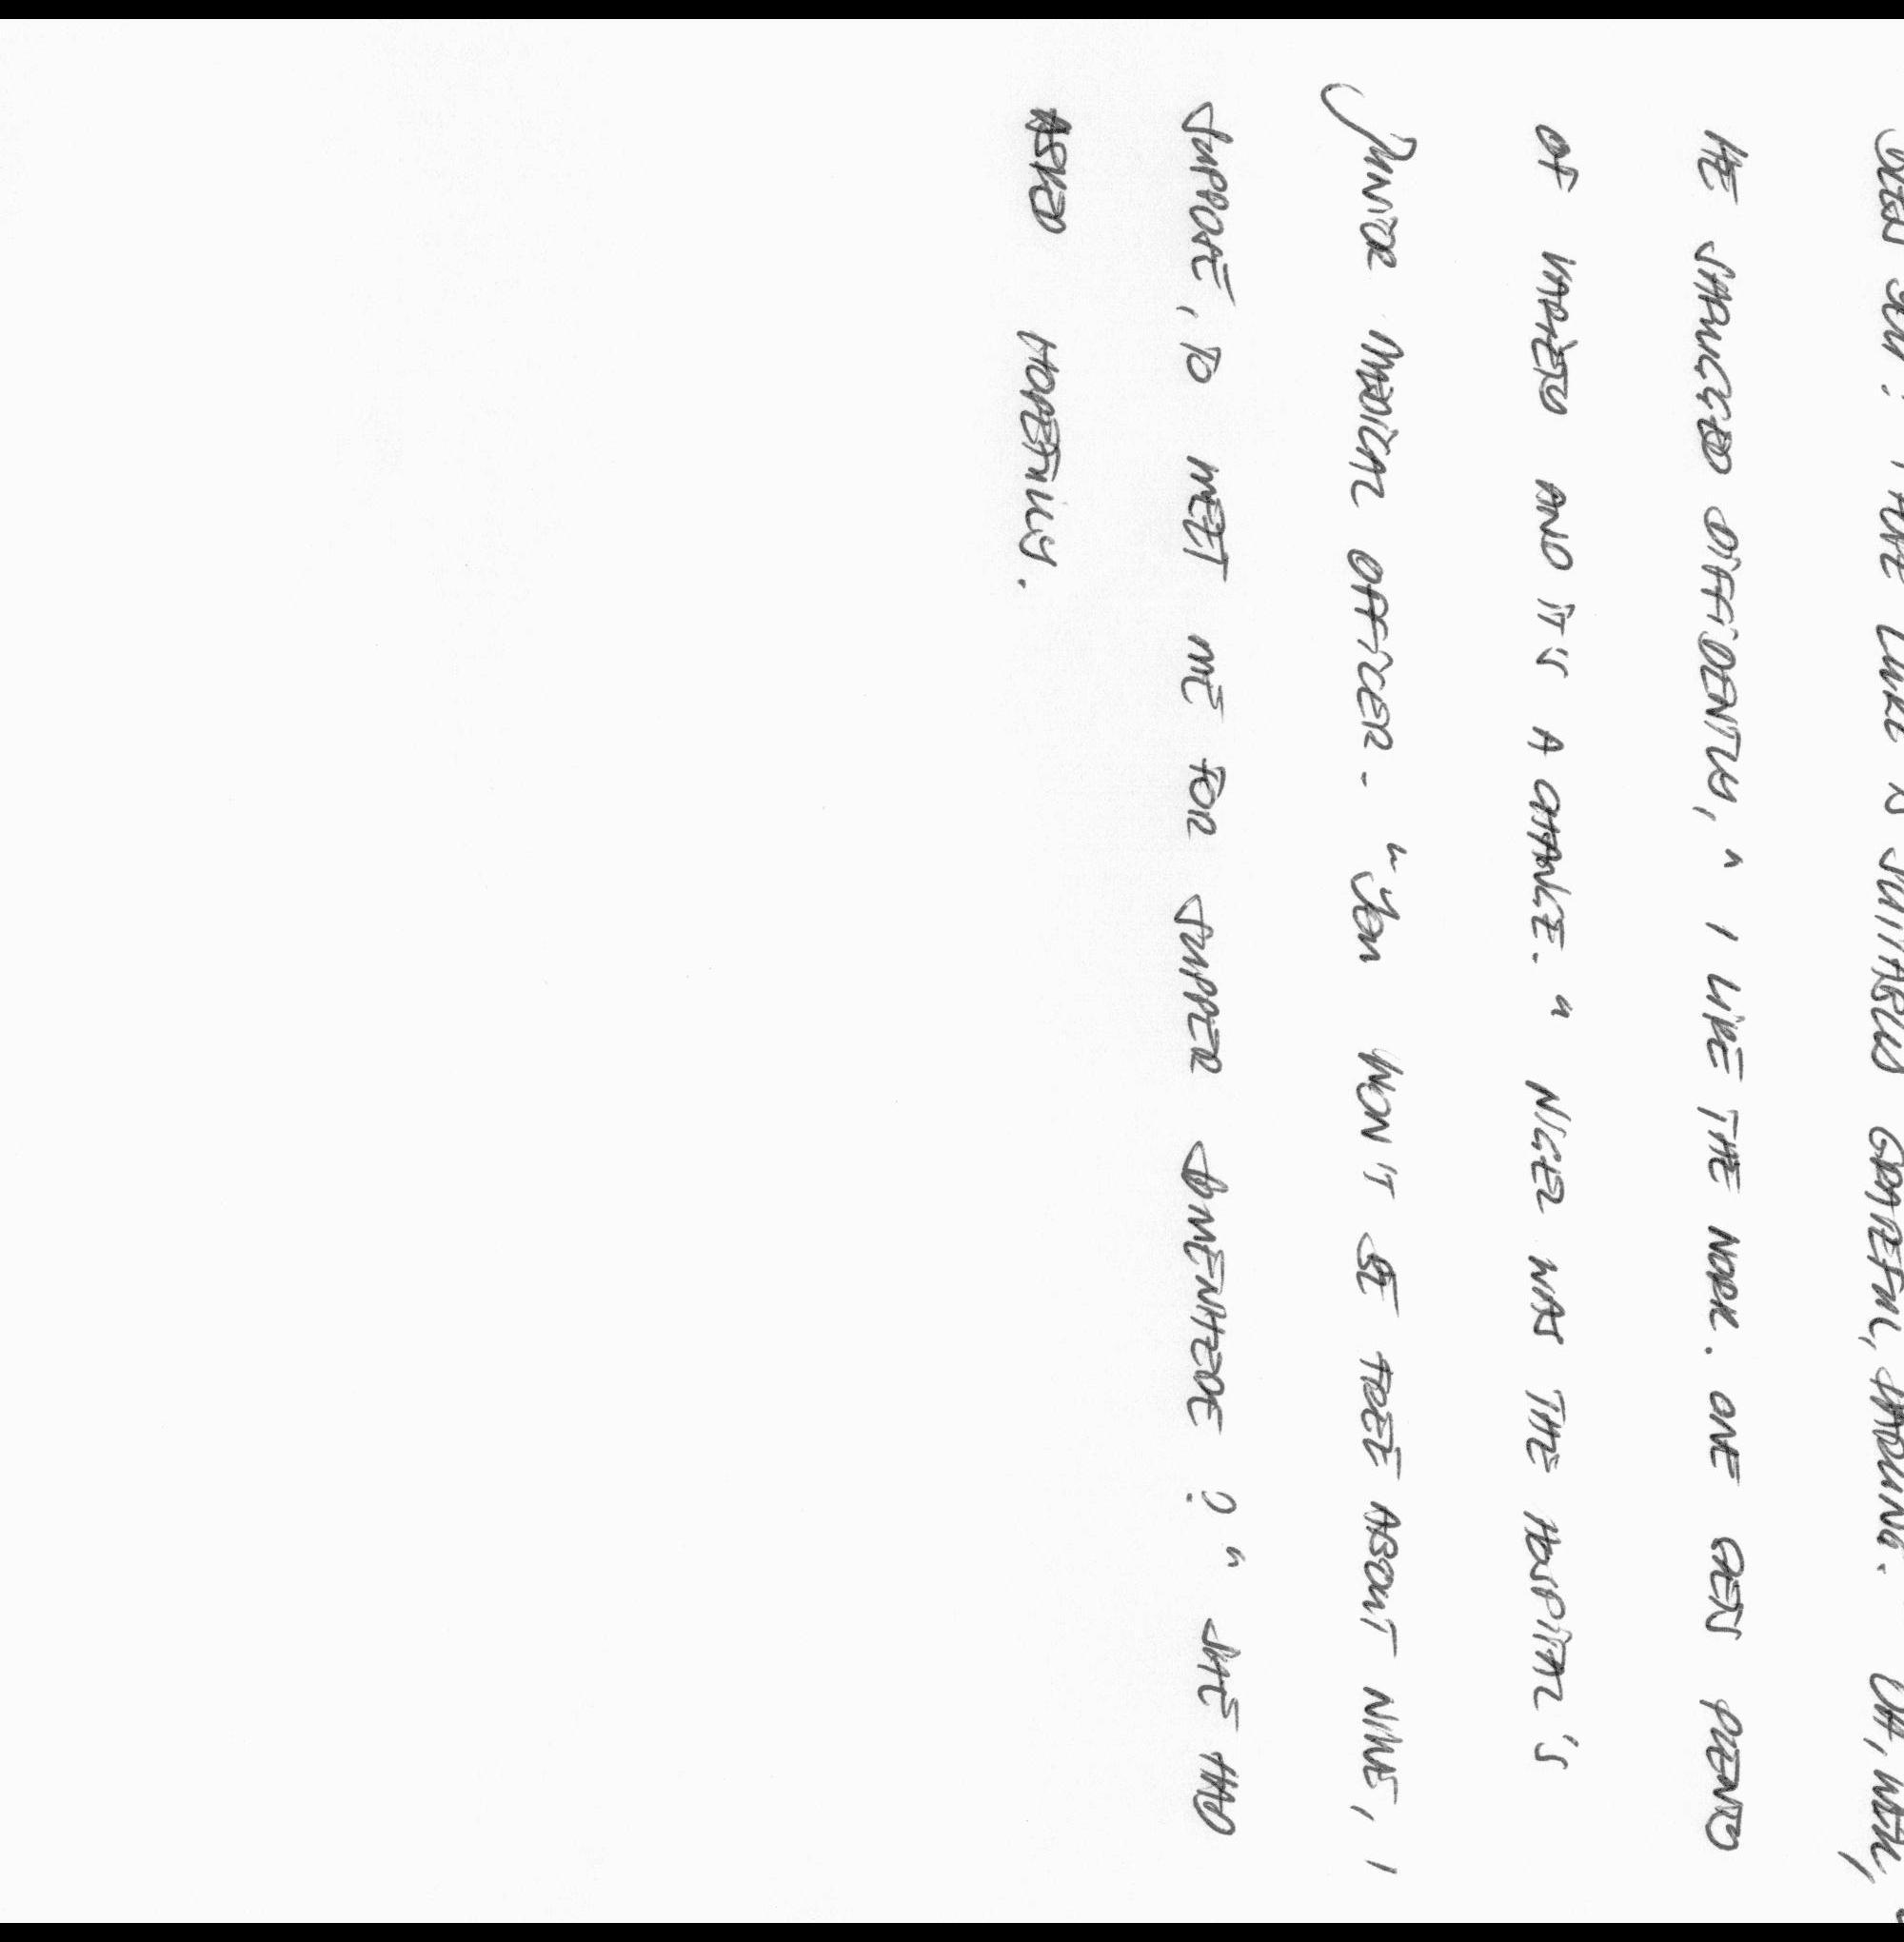 BLESS YOU! I HOPE LUKE IS SUITABLY GRATEFUL, DARLING." "OH, WELL,"
HE SHRUGGED DIFFIDENTLY, "I LIKE THE WORK. ONE GETS PLENTY
OF VARIETY AND IT'S A CHANGE." NIGEL WAS THE HOSPITAL'S
JUNIOR MEDICAL OFFICER. "YOU WON'T BE FREE ABOUT NINE, I
SUPPOSE, TO MEET ME FOR SUPPER SOMEWHERE?" SHE HAD
ASKED HOPEFULLY.